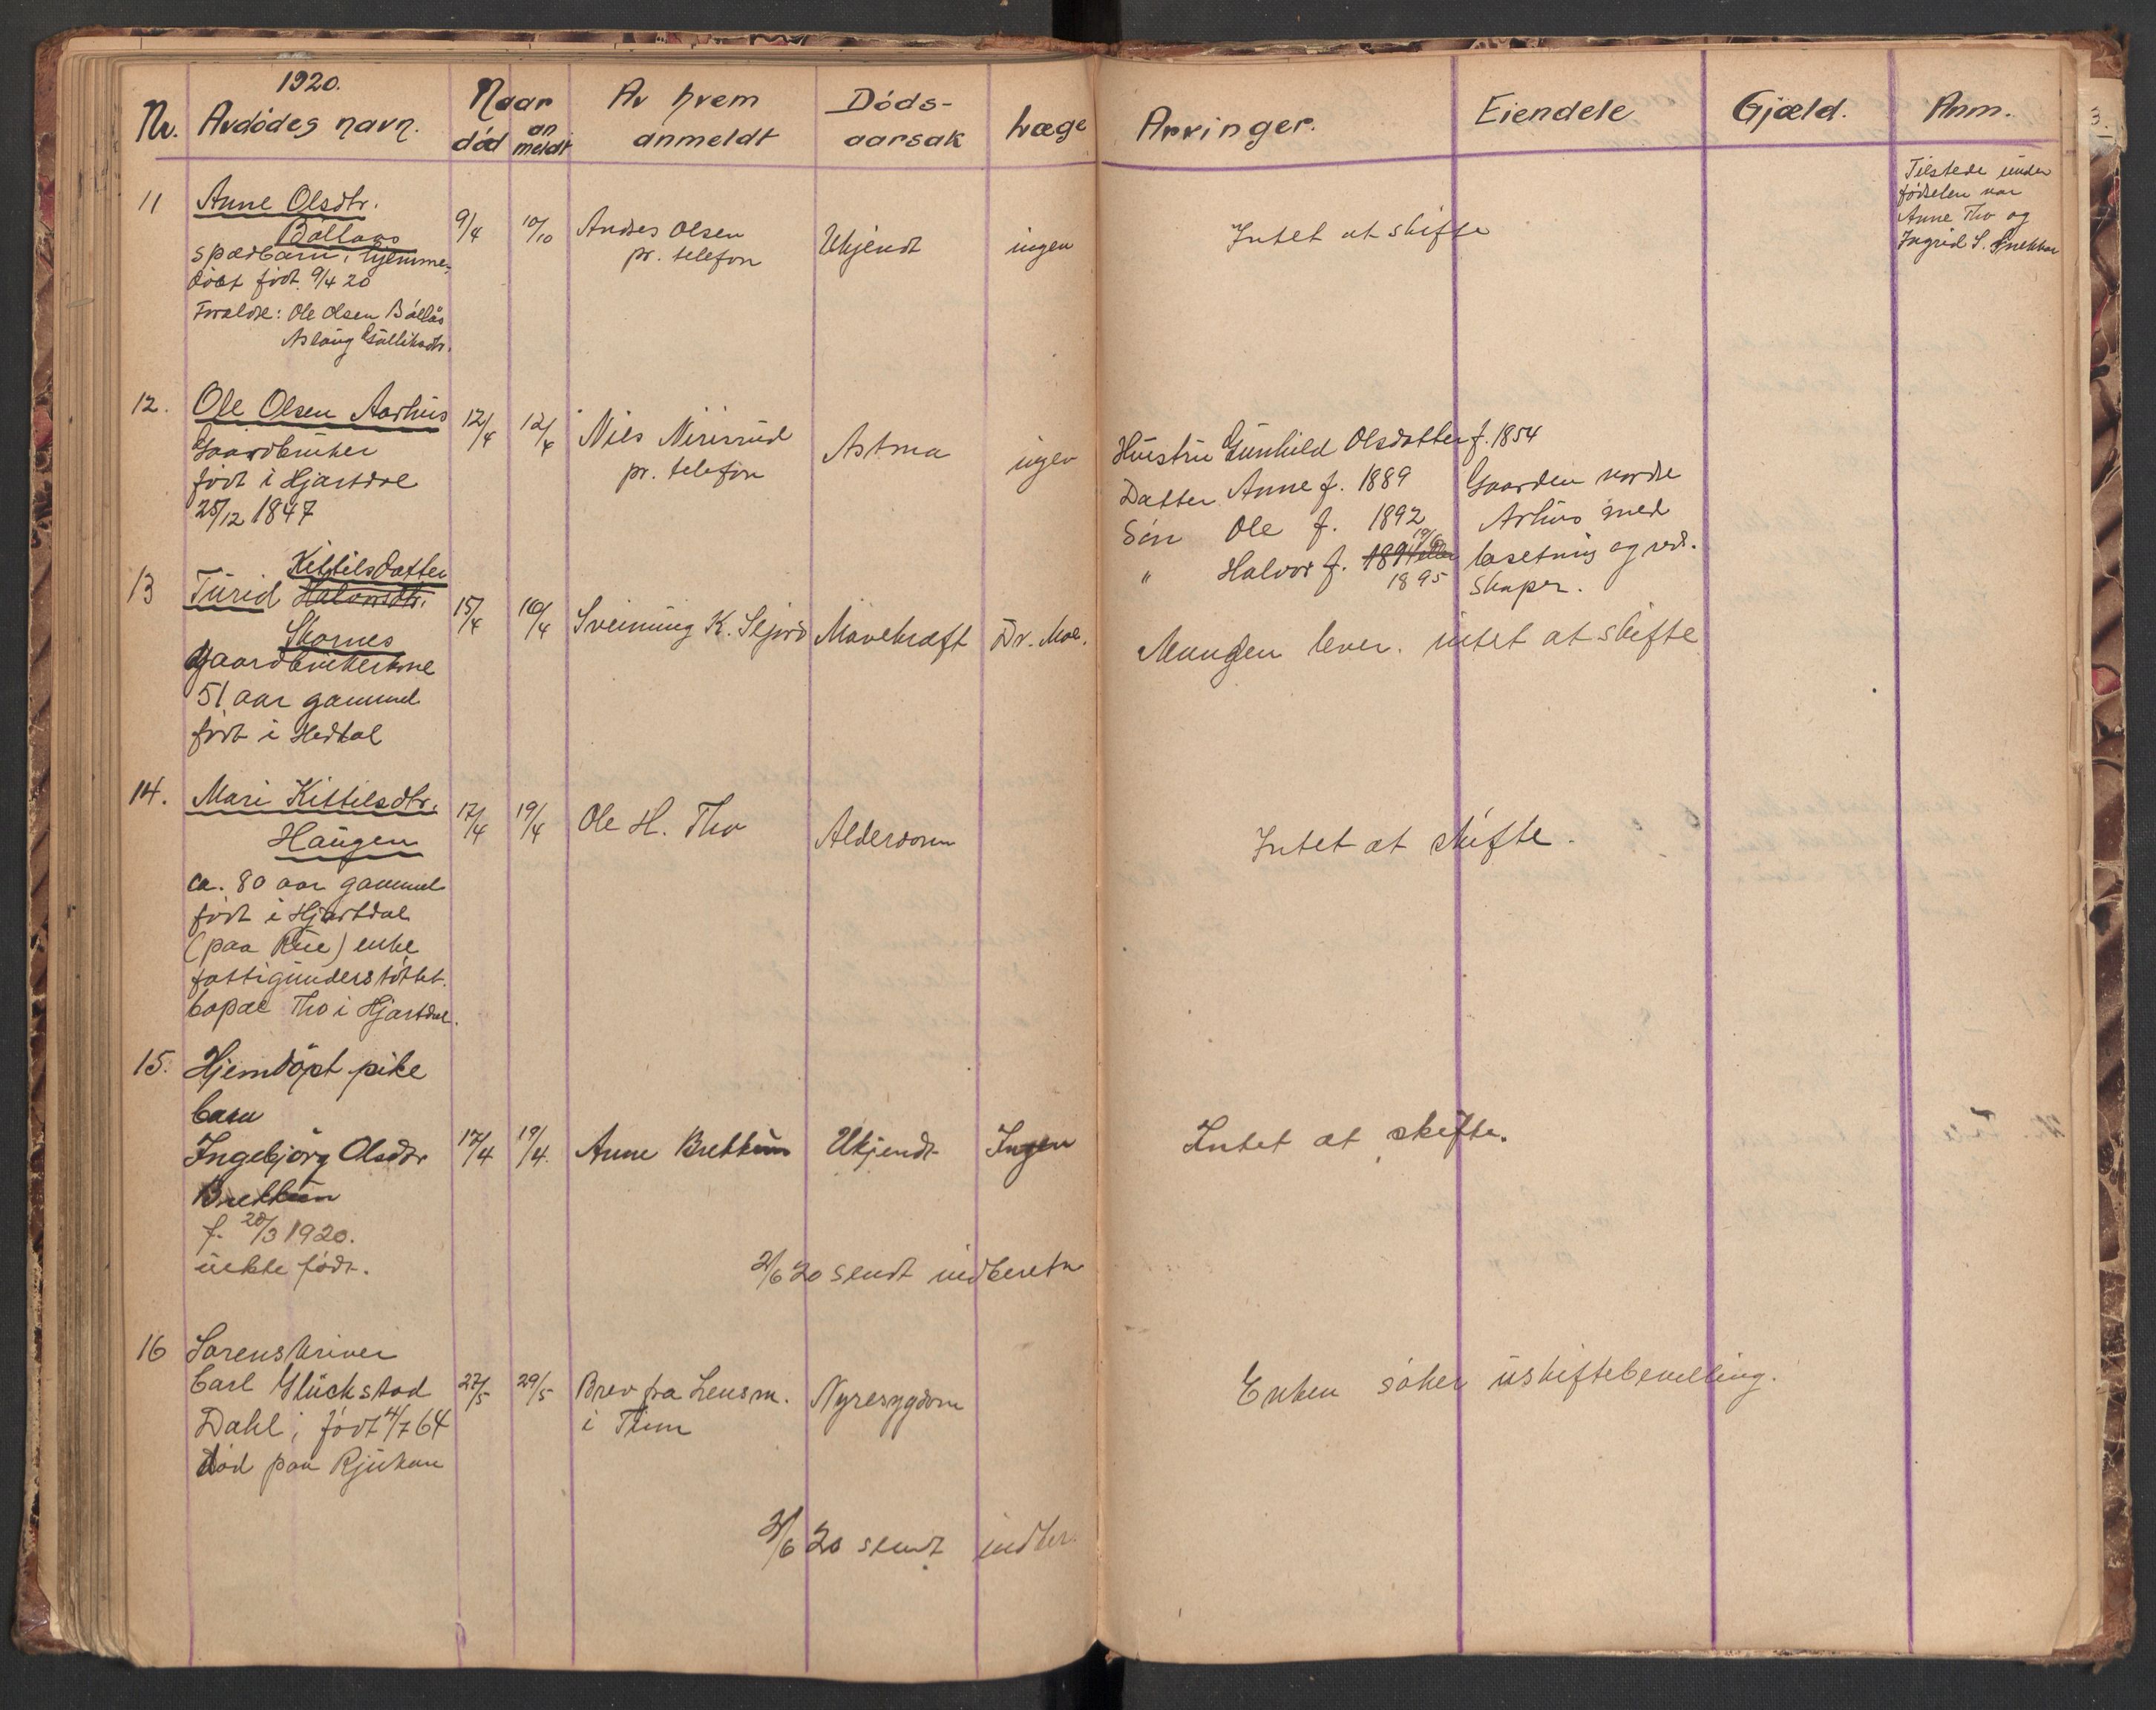 1920.
Nr. Avdödes navn. Naar död an meldt Av hvem anmeldt Döds-aarsak Læge Arvinger. Eiendele Gjæld. Anm.
11 Anne Olsdtr. Böllaas
spædbarn, hjemme-
döbt födt 9/4 20
Forældre: Ole Olsen Böllås
Aslaug Gulliksdtr.
9/4 10/10 Andres Olsen
pr. telefon
Ukjendt ingen Intet at skifte
Tilstede under
födselen var
Anne Tho og
Ingrid S.
12. Ole Olsen Aarhus
Gaardbruker
födt i Hjartdal
25/12 1847
12/4 12/4 Nils Nirisrud
pr. telefon
Astma ingen
Hustru Gunhild Olsdatter f. 1854
Datter Anne f. 1889
Sön Ole f. 1892
" Halvor f. 1894 eller 19/6
1895
Gaarden nordre
Århus med
besetning og red-
skaper.
13 Turid Halvorsdtr. Kittilsdatter
Skornes
Gaardbrukerkone
51 aar gammel
födt i Hedtal
15/4 16/4 Sveinung K. Sljord Mavekræft Dr. Moe. Manden lever. intet at skifte
14. Mari Kittilsdtr.
Haugen
ca. 80 aar gammel
födt i Hjartdal
(paa Rue) enke
fattigunderstöttet.
bopæl Tho i Hjartdal.
17/4 19/4 Ole H. Tho Alderdom Intet at skifte.
15. Hjemdöpt pike
barn
Ingebjörg Olsdtr
Brekkun
f. 20/3 1920.
uekte födt.
17/4 19/4. Anne Brekkun Ukjendt Ingen Intet at skifte.
2/6 20 sendt indberetn
16 Sorenskriver
Carl Glückstad
Dahl, födt 4/7 64
död paa Rjukan
27/5 29/5 Brev fra Lensm.
i Tinn
Nyresygdom Enken söker uskiftebevilling.
2/6 20 sendt indber.